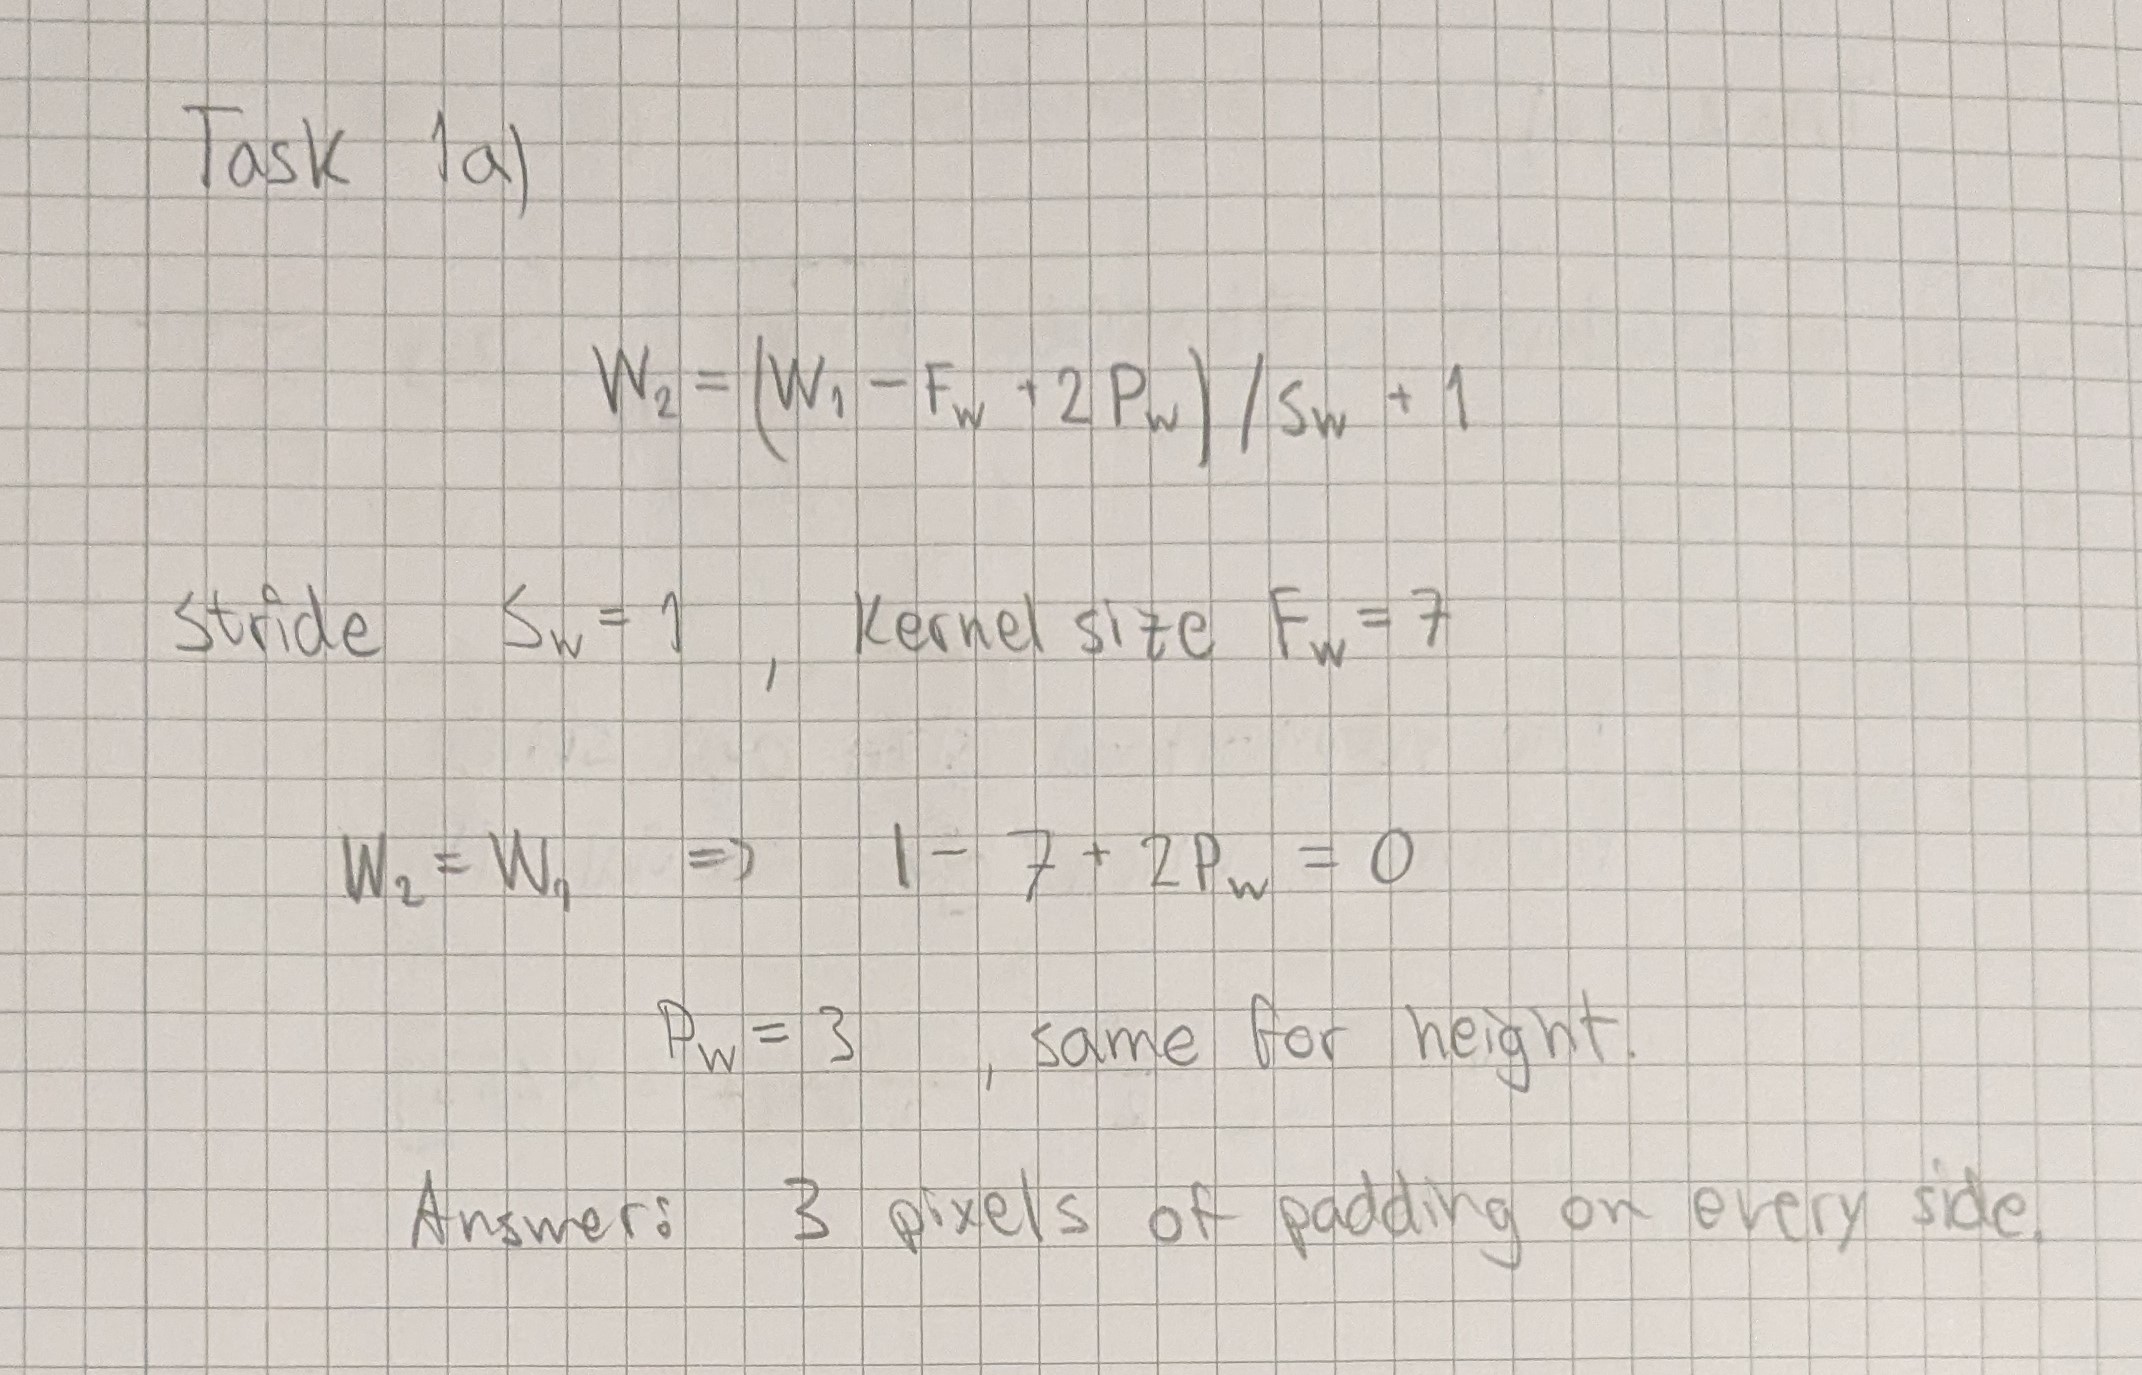 Task 1a)
W₂ = (W₁ - F_w + 2 P_w) / S_w + 1
Stride S_w = 1 , Kernel size F_w = 7
W₂ = W₁ => 1 - 7 + 2P_w = 0
P_w = 3 , same for height.
Answer: 3 pixels of padding on every side.